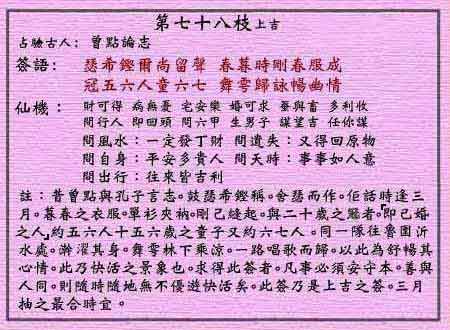 第七十八枝 上吉
占驗古人：曾點論志
簽語： 瑟希鏗爾尚留聲 春暮時剛春服成
冠五六人童六七 舞雩歸詠暢幽情
仙機： 財可得 病無憂 宅安樂 婚可求 蚕與畜 多利收
問行人 即回頭 問六甲 生男子 謀望吉 任你謀
問風水：一定發丁財 問遺失：又得回原物
問自身：平安多貴人 問天時：事事如人意
問出行：往來皆吉利
註：昔曾點與孔子言志。鼓瑟希鏗稱。舍瑟而作。佢話時逢三
月。暮春之衣服。單衫夾衲。剛己縫起。與二十歲之冠者。即己婚
之人，約五六人十五六歲之童子又約六七人。同一隊往魯國沂
水處。濣濯其身。舞雩林下乘涼。一路唱歌而歸。以此為舒暢其
心情。此乃快活之景象也。求得此簽者。凡事必須安守本。善與
人同。則隨時隨地無不優遊快活矣。此簽乃是上吉之簽。三月
抽之最合時宜。